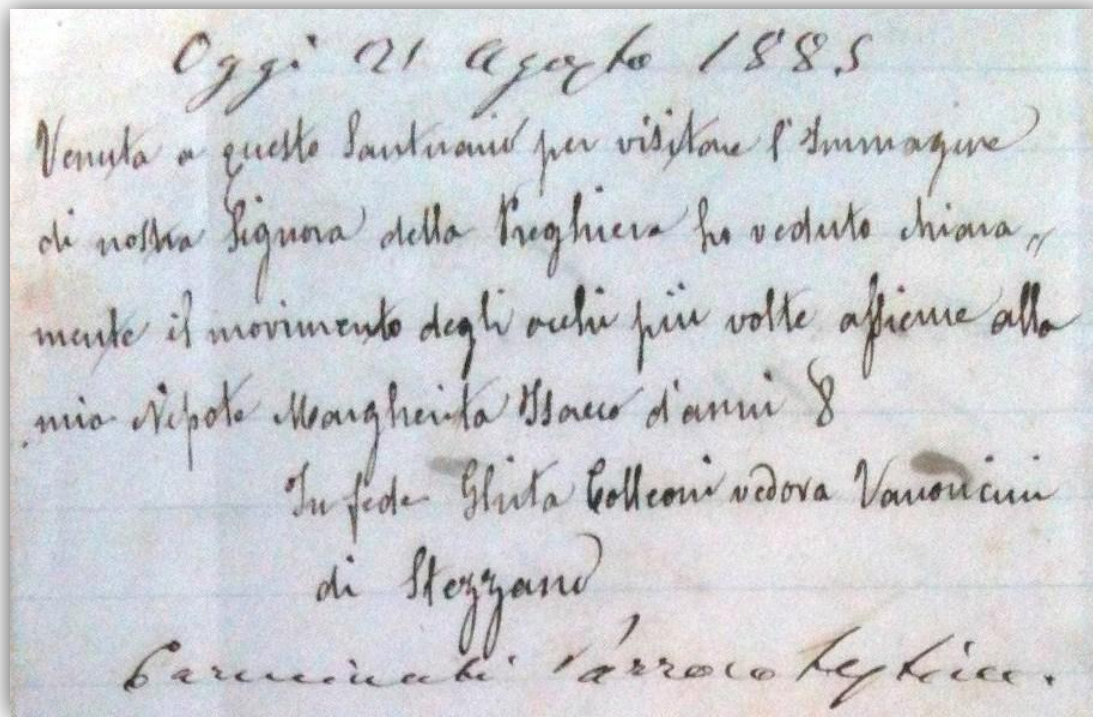 Oggi 21 Agosto 1885
Venuta a questo Santuario per visitare l'Immagine
di nostra Signora della Preghiera ho veduto chiara„
mente il movimento degli occhi più volte assieme alla
mia Nipote Margherita Isacco d'anni 8
In fede Ghita Colleoni vedova Vanoncini
di Stezzano
Carminati Parroco testim.